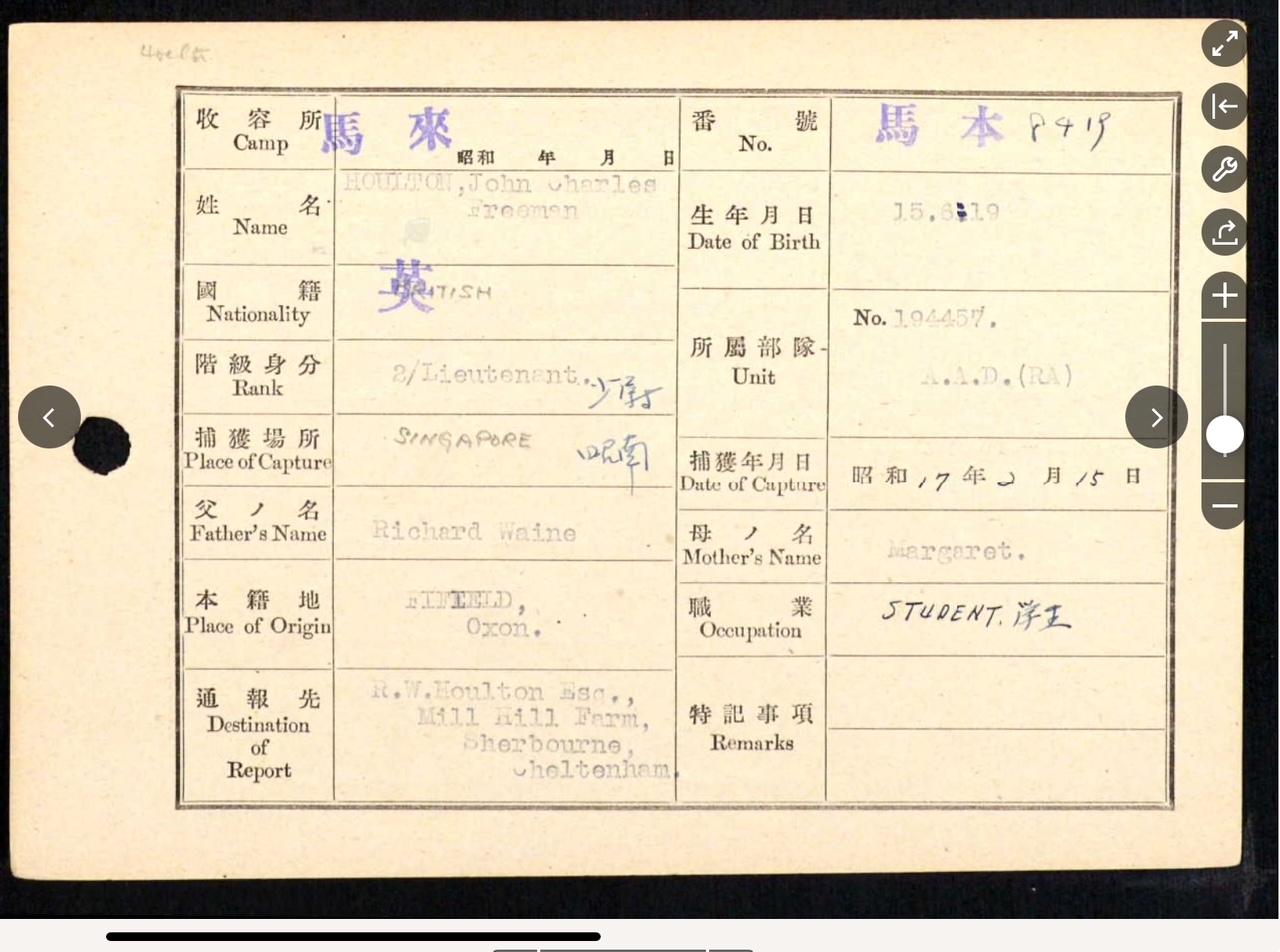 收容所
Camp
馬來
昭和 年 月 日
番號
No.
馬本 8419
姓名
Name
HOULTON, John Charles
Freeman
生年月日
Date of Birth
15.6.19
國籍
Nationality
英
BRITISH
階級身分
Rank
2/Lieutenant. 少尉
所屬部隊
Unit
No. 194457.
A.A.D.(RA)
捕獲場所
Place of Capture
SINGAPORE 昭南
捕獲年月日
Date of Capture
昭和 17 年 2 月 15 日
父ノ名
Father's Name
Richard Waine
母ノ名
Mother's Name
Margaret.
本籍地
Place of Origin
FIFIELD,
Oxon.
職業
Occupation
STUDENT. 学生
通報先
Destination
of
Report
R.W.Houlton Esq.,
Mill Hill Farm,
Sherbourne,
Cheltenham.
特記事項
Remarks